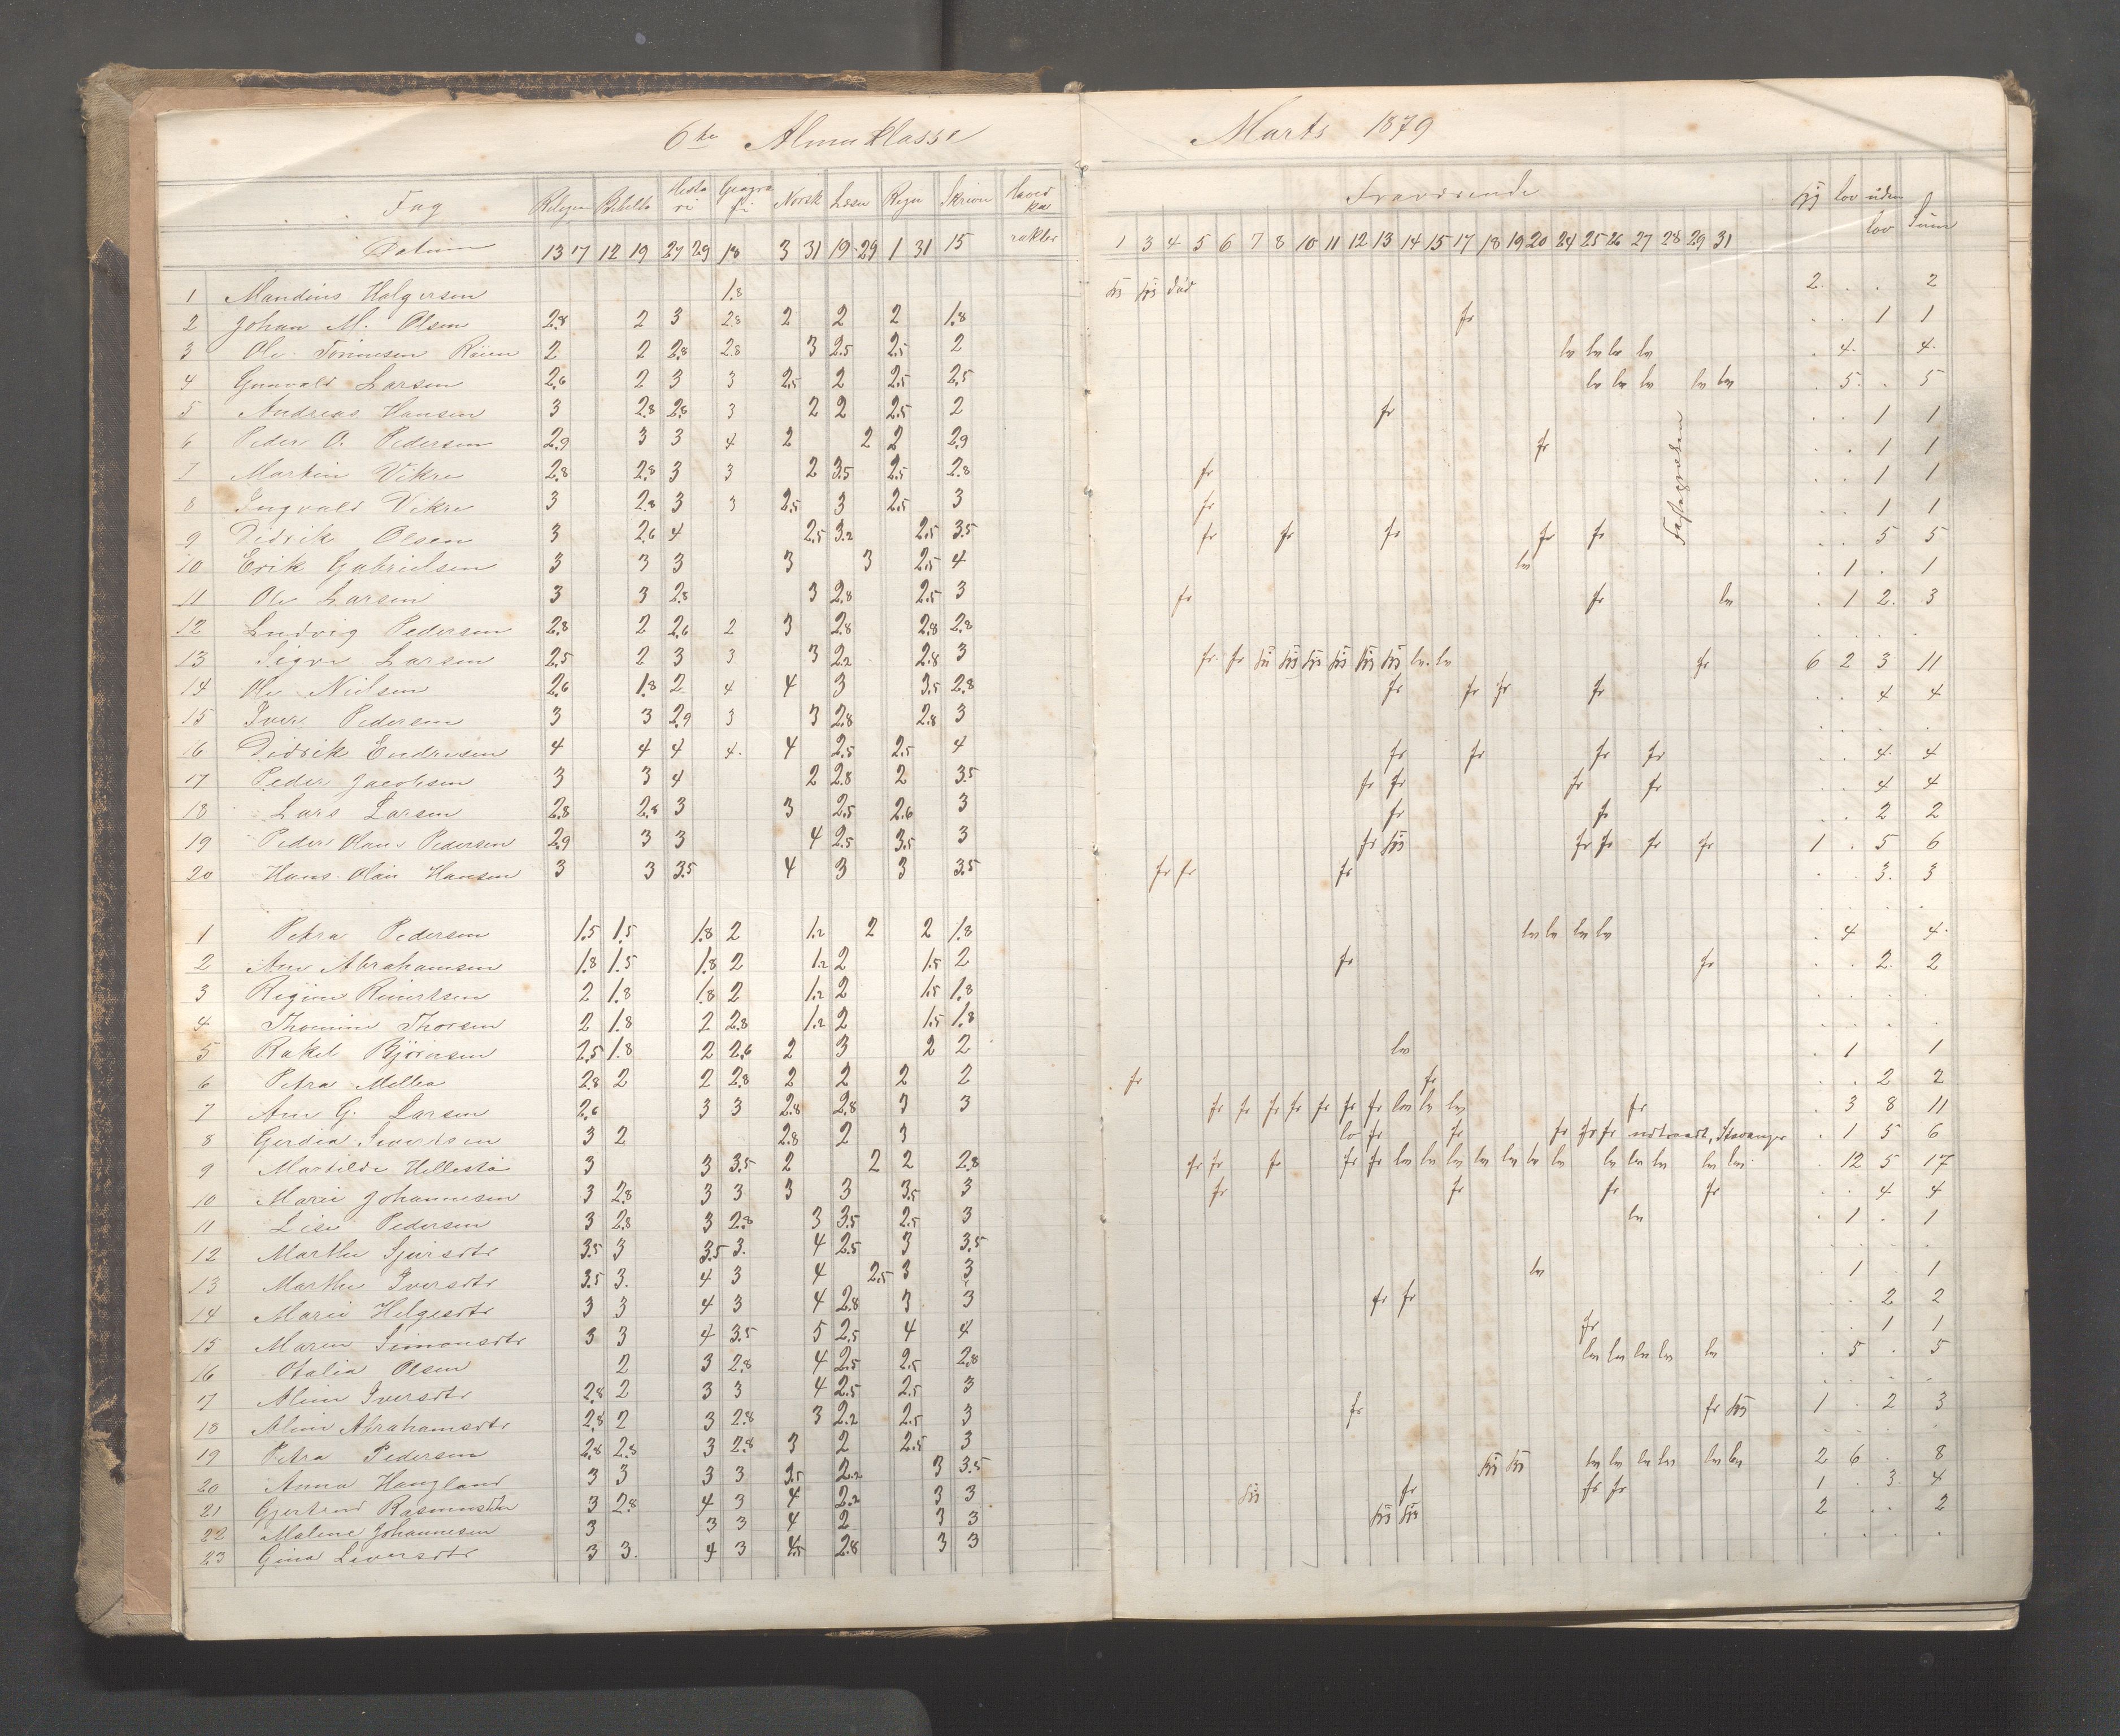 6te Almueklasse Marts 1879
Fag Religion Bibelh Histo ri Geogra fi Norsk Læsn Regn Skrivn Hoved kar rakter Fraværende syg lov uden lov Sum
Datum 13 17 12 19 27 29 18 3 31 19 29 1 31 15 1 3 4 5 6 7 8 10 11 12 13 14 15 17 18 19 20 24 25 26 27 28 29 31
1 Mandius Holgersen 1.8 syg syg död 2 . . 2
2 Johan M. Olsen 2.8 2 3 2.8 2 2 2 1.8 fr . . 1 1
3 Ole Tönnesen Röien 2 2 2.8 2.8 3 2.5 2.5 2 lov lov lov lov . 4. 4.
4 Gunvald Larsen 2.6 2 3 3 2.5 2 2.5 2.5 lov lov lov lov lov . 5. . 5
5 Andreas Hansen 3 2.8 2.8 3 2 2 2.5 2 fr . . 1 1
6 Peder O. Pedersen 2.9 3 3 4 2 2 2 2.9 fr . . 1 1
7 Martin Vikre 2.8 2.8 3 3 2 3.5 2.5 2.8 fr . . 1 1
8 Ingvald Vikre 3 2.8 3 3 2.5 3 2.5 3 fr . . 1 1
9 Didrik Olsen 3 2.6 4 2.5 3.2 2.5 3.5 fr fr fr fr fr . . 5 5
10 Erik Gabrielsen 3 3 3 3 3 2.5 4 lov . 1 . 1
11 Ole Larsen 3 3 2.8 3 2.8 2.5 3 fr fr lov . 1 2. 3
12 Ludvig Pedersen 2.8 2 2.6 2 3 2.8 2.8 2.8 . . . .
13 Sigve Larsen 2.5 2 3 3 3 2.2 2.8 3 fr fr syg syg syg syg syg syg lov lov fr 6 2 3 11
14 Ole Nielsen 2.6 1.8 2 4 4 3 3.5 2.8 fr fr fr fr . . 4 4
15 Iver Pedersen 3 3 2.9 3 3 2.8 2.8 3 . . . .
16 Didrik Endresen 4 4 4 4. 4 2.5 2.5 4 fr fr fr fr . . 4. 4
17 Peder Jacobsen 3 3 4 2 2.8 2 3.5 fr fr fr fr . . 4 4
18 Lars Larsen 2.8 2.8 3 3 2.5 2.6 3 fr fr . . 2 2
19 Peder Olaus Pedersen 2.9 3 3 4 2.5 3.5 3 fr syg fr fr fr fr 1 . 5 6
20 Hans Olai Hansen 3 3 3.5 4 3 3 3.5 fr fr fr . . 3. 3
1 Petra Pedersen 1.5 1.5 1.8 2 1.2 2 2 1.8 lov lov lov lov . 4 4.
2 Ane Abrahamsen 1.8 1.5 1.8 2 1.2 2 1.5 2 fr fr . . 2. 2
3 Regine Reinertsen 2 1.8 1.8 2 1.2 2 1.5 1.8 . . . .
4 Thomine Thorsen 2 1.8 2 2.8 1.2 2 1.5 1.8 . . . .
5 Rakel Björnsen 2.5 1.8 2 2.6 2 3 2 2 lov . 1 1
6 Petra Melbø 2.8 2 2 2.8 2 2 2 2 fr fr . . 2 2
7 Ane G. Larsen 2.6 3 3 2.8 2.8 3 3 fr fr fr fr fr fr fr lov lov lov fr . 3 8 11
8 Gerdia Sivertsen 3 2 2.8 2 3 lov fr fr fr fr fr udtraadt, Stavanger . 1 5 6
9 Matilde Hellestø 3 3 3.5 2 2 2 2.8 fr fr fr fr fr lov lov lov lov lov lov lov lov lov lov lov lov . 12 5 17
10 Marie Johannesen 3 2.8 3 3 3 3 3.5 3 fr fr fr fr . . 4 4
11 Lise Pedersen 3 2.8 3 2.8 3 3.5 2.5 3 lov . 1 . 1
12 Marthe Sjursdtr 3.5 3 3.5 3. 4 2.5 3 3.5 . . . .
13 Marthe Iversdtr 3.5 3. 4 3 4 2.5 3 3 lov . 1 . 1
14 Marie Helgesdtr 3 3 4 3 4 2.8 3 3 fr fr . . 2 2
15 Maren Simonsdtr 3 3 4 3.5 5 2.5 4 4 fr . . 1 1
16 Otalia Olsen 2 3 2.8 4 2.5 2.5 2.8 lov lov lov lov lov . 5 . 5
17 Aline Iversdtr 2.8 2 3 3 4 2.5 2.5 3 . . . .
18 Aline Abrahamsdtr 2.8 2 3 2.8 3 2.2 2.5 3 fr fr syg 1 . 2 3
19 Petra Pedersen 2.8 2.8 3 2.8 3 2 2.5 3 . . . .
20 Anna Haugland 3 3 3 3 3.5 2.2 3 3.5 syg syg lov lov lov lov lov lov 2 6 . 8
21 Gjertrud Rasmusdtr 3 2.8 4 3 4 2.2 3 3 syg fr fr fr 1 . 3. 4
22 Malene Johannesen 3 3 3 4 2 3 3 syg syg 2 . . 2
23 Gina Siversdtr 3 3. 4 3 4.5 2.8 3 3 . . . .